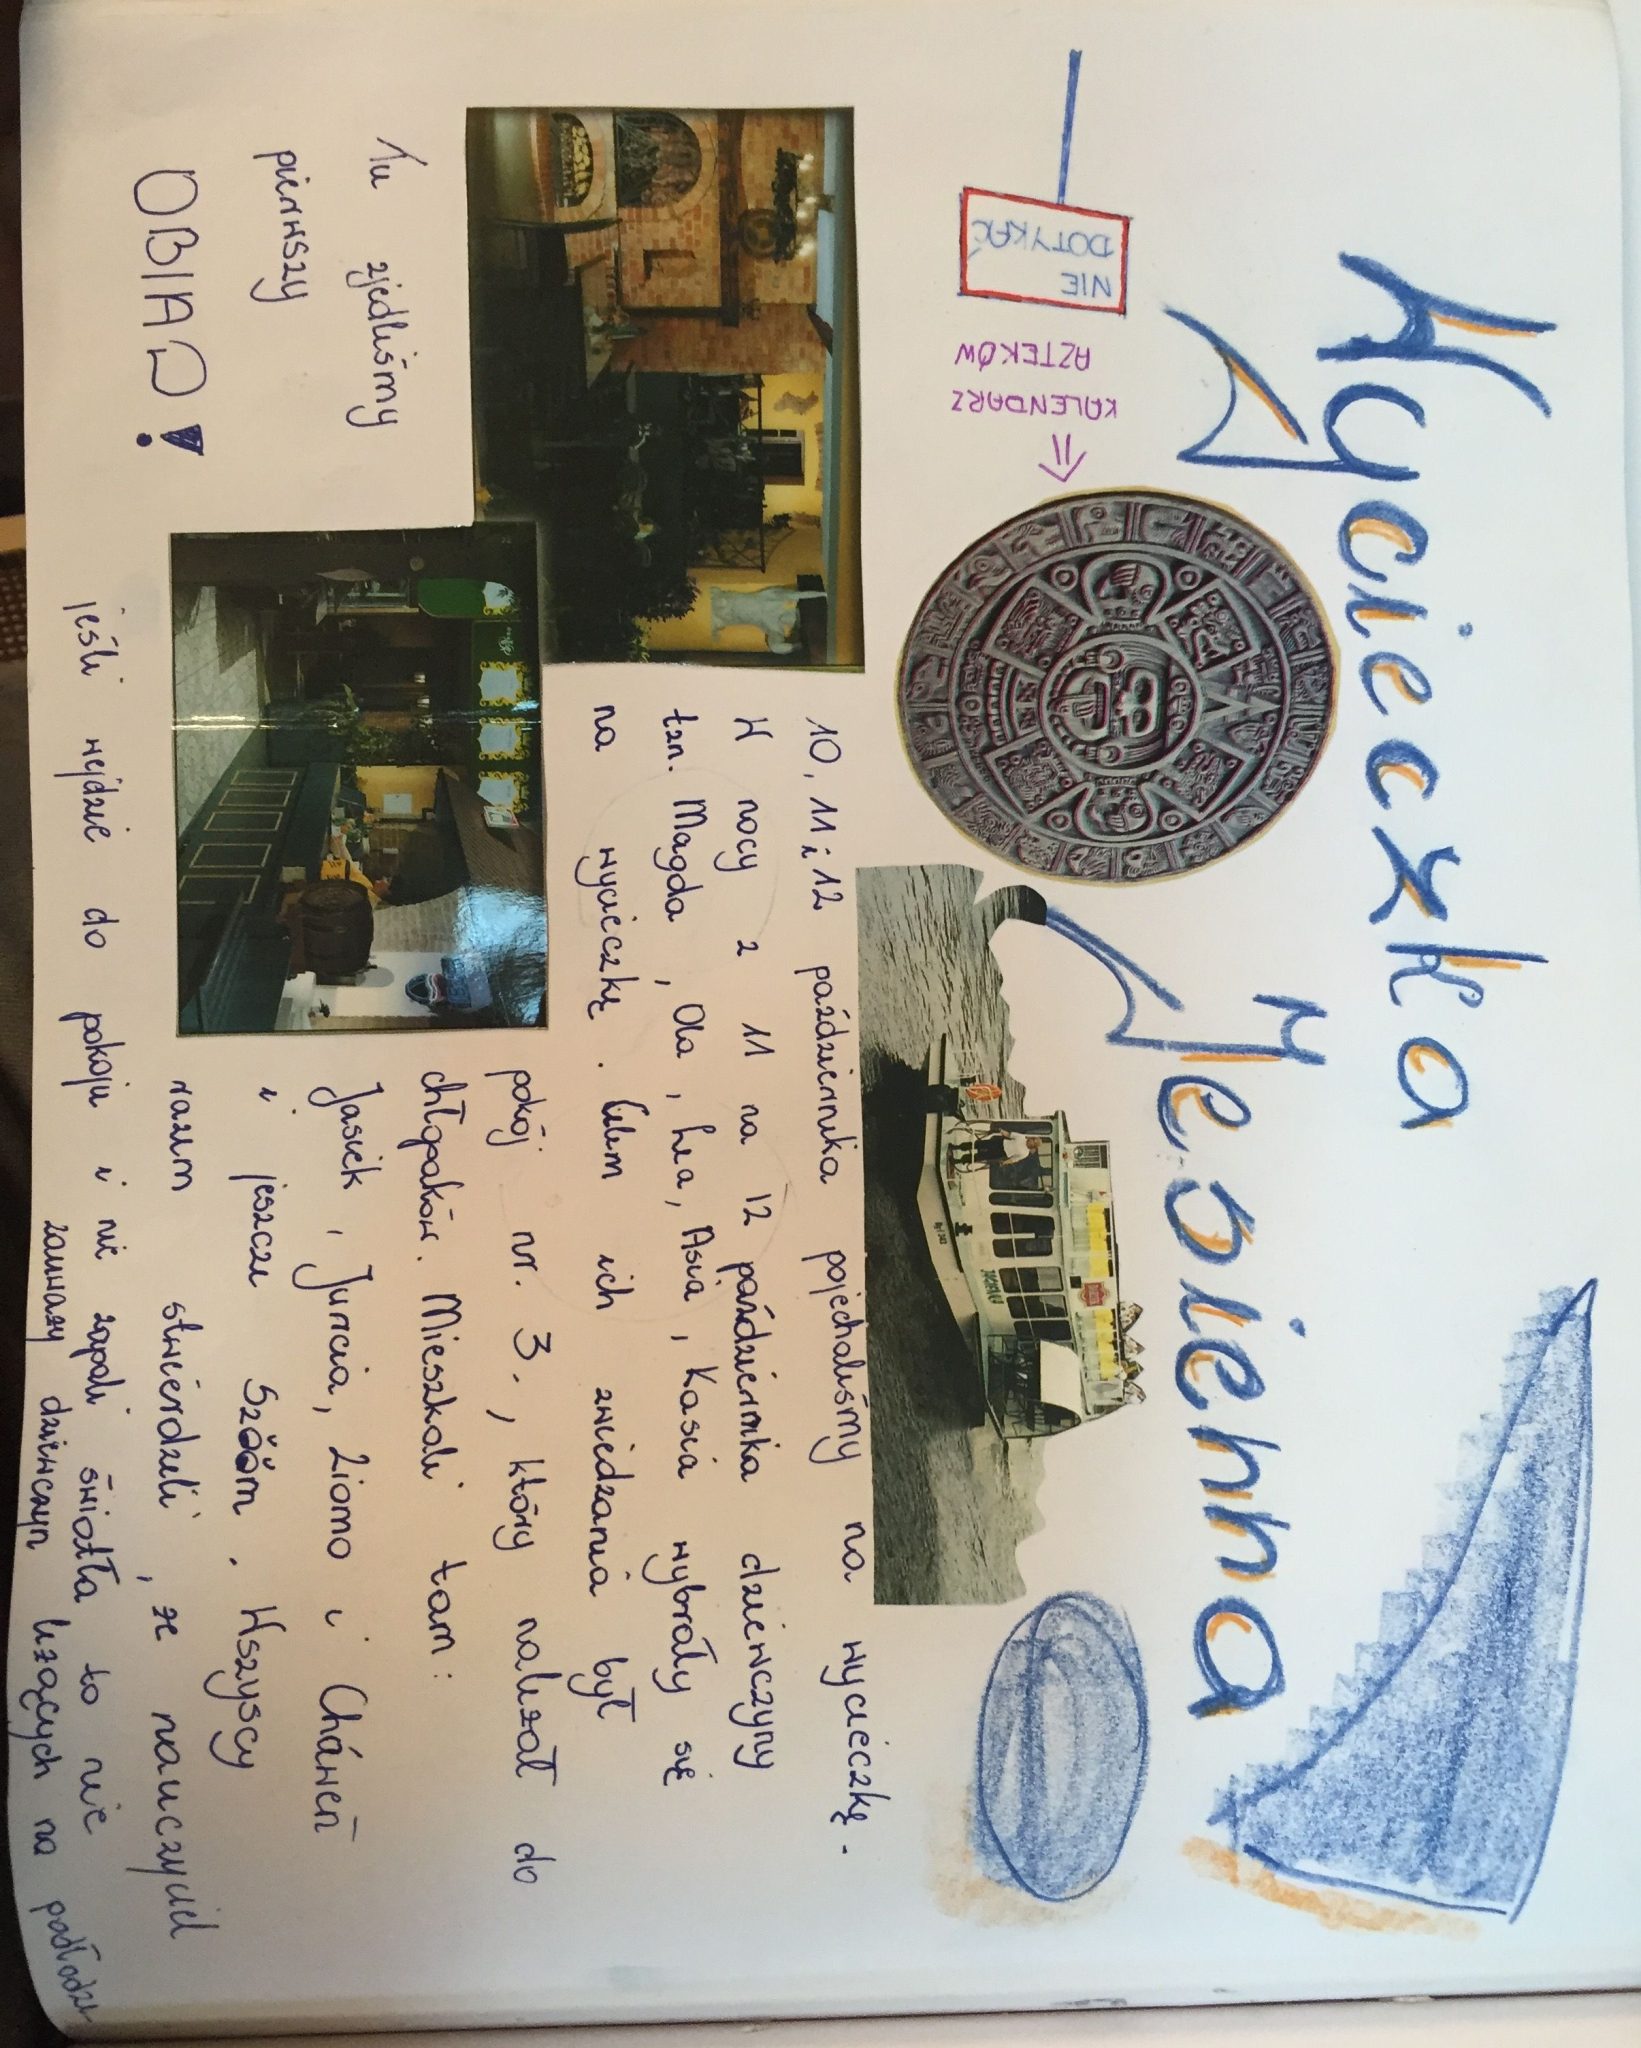 Wycieczka
Jesienna
NIE
DOTYKAĆ
KALENDARZ
AZTEKÓW
10, 11 i 12 października pojechaliśmy na wycieczkę.
W nocy z 11 na 12 października dziewczyny
tzn. Magda, Ola, Lea, Asia, Kasia wybrały się
na wycieczkę. Celem ich zwiedzania był
pokój nr. 3., który należał do
chłopaków. Mieszkali tam:
Jasiek, Jurcia, Ziomo i Cháweř
i jeszcze Szööm. Wszyscy
razem stwierdzili, że nauczyciel
jeśli wejdzie do pokoju i nie zapali światła to nie
zauważy dziewczyn leżących na podłodze
Tu zjedliśmy
pierwszy
OBIAD!